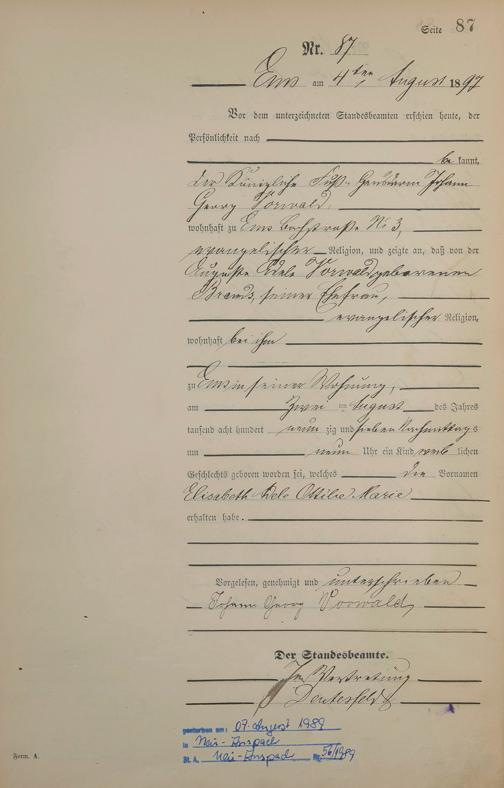 Seite 87
Nr. 87
Ems am 4ten August 1897
Vor dem unterzeichneten Standesbeamten erschien heute, der
Persönlichkeit nach
be kannt,
der Königliche Fuß-Gendarm Johann
Georg Vorwald,
wohnhaft zu Ems Bachstraße No 3,
evangelischer Religion, und zeigte an, daß von der
Auguste Adele Vorwald geborenen
Brand, seiner Ehefrau,
evangelischer Religion,
wohnhaft bei ihm
zu Ems in seiner Wohnung,
am Zwei ten August des Jahres
tausend acht hundert neun zig und sieben Nachmittags
um neun Uhr ein Kind weib lichen
Geschlechts geboren worden sei, welches die Vornamen
Elisabeth Adele Ottilie Marie
erhalten habe.
Vorgelesen, genehmigt und unterschrieben
Johann Georg Vorwald,
Der Standesbeamte.
In Vertretung
gestorben am: 07. August 1989
in Neu-Anspach
St. A. Neu-Anspach Nr. 56/1989
Form. A.